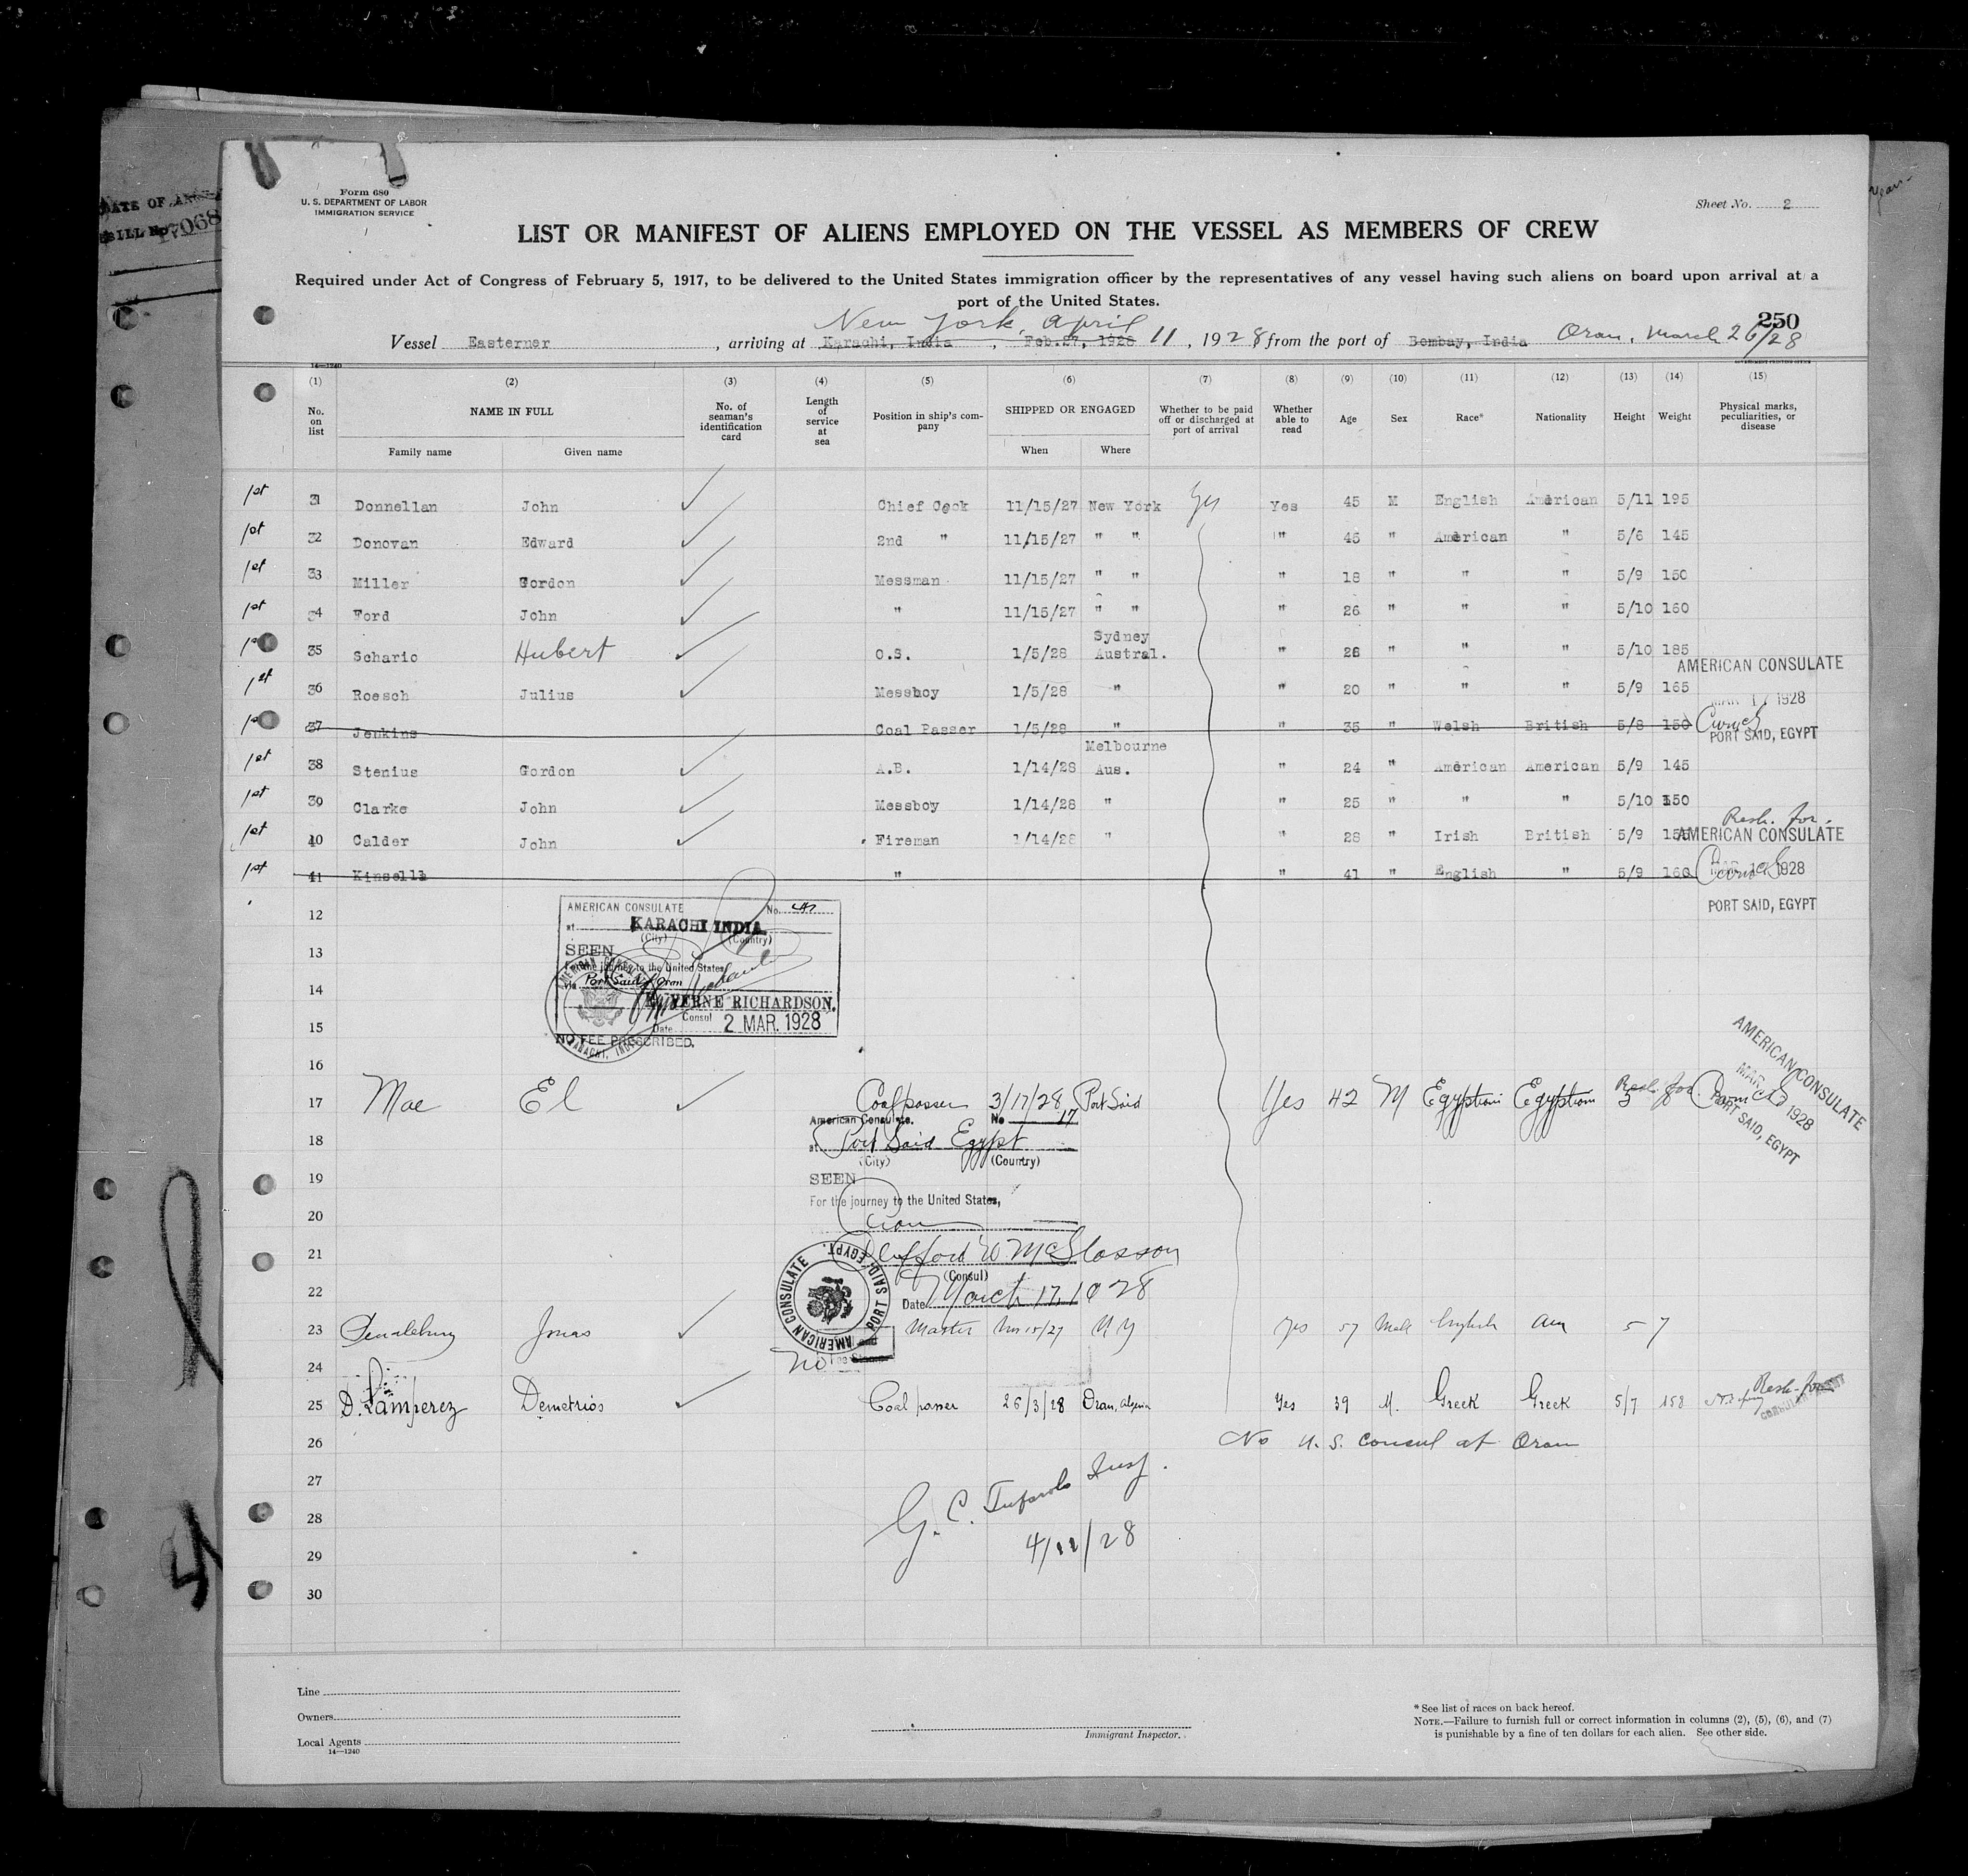 DATE OF
BILL No 7068
Form 680
U. S. DEPARTMENT OF LABOR
IMMIGRATION SERVICE
Sheet No. 2
LIST OR MANIFEST OF ALIENS EMPLOYED ON THE VESSEL AS MEMBERS OF CREW
Required under Act of Congress of February 5, 1917, to be delivered to the United States immigration officer by the representatives of any vessel having such aliens on board upon arrival at a
port of the United States.
New York, April 250
Vessel Easterner , arriving at Karachi, India , Feb.27, 1928 11 , 1928 from the port of Bombay, India Oran, March 26/28
14—1240
(1) (2) (3) (4) (5) (6) (7) (8) (9) (10) (11) (12) (13) (14) (15)
No. on list NAME IN FULL No. of seaman's identification card Length of service at sea Position in ship's company SHIPPED OR ENGAGED Whether to be paid off or discharged at port of arrival Whether able to read Age Sex Race* Nationality Height Weight Physical marks, peculiarities, or disease
Family name Given name When Where
1st 31 Donnellan John Chief Cook 11/15/27 New York Yes Yes 45 M English American 5/11 195
1st 32 Donovan Edward 2nd " 11/15/27 " " " 45 " American " 5/6 145
1st 33 Miller Gordon Messman 11/15/27 " " " 18 " " " 5/9 150
1st 34 Ford John " 11/15/27 " " " 26 " " " 5/10 160
35 Schario Hubert O.S. 1/5/28 Sydney Austral. " 26 " " " 5/10 185
AMERICAN CONSULATE
1st 36 Roesch Julius Messboy 1/5/28 " " 20 " " " 5/9 165
MAR 17 1928
37 Jenkins Coal Passer 1/5/28 " " 35 " Welsh British 5/8 150
PORT SAID, EGYPT
1st 38 Stenius Gordon A.B. 1/14/28 Melbourne Aus. " 24 " American American 5/9 145
1st 39 Clarke John Messboy 1/14/28 " " 25 " " " 5/10 150
1st 40 Calder John Fireman 1/14/28 " " 28 " Irish British 5/9 155
AMERICAN CONSULATE
1st 41 Kinsella " " 41 " English " 5/9 160
1928
PORT SAID, EGYPT
12
AMERICAN CONSULATE No.
at KARACHI INDIA
(City) (Country)
13
SEEN
For the journey to the United States
via Port Said & Oran
14
VERNE RICHARDSON,
Consul
15
Date 2 MAR. 1928
NO FEE PRESCRIBED.
16
17 Mae El Coalpasser 3/17/28 Port Said Yes 42 M Egyptian Egyptian 5 8
AMERICAN CONSULATE
MAR 1928
PORT SAID, EGYPT
American Consulate. No 17
18
at Port Said Egypt
(City) (Country)
19
SEEN
For the journey to the United States,
20
Oran
21
Clifford W. McGlasson
(Consul)
22
Date March 17, 1928
AMERICAN CONSULATE PORT SAID, EGYPT.
23 Jonas Master Nov 15/27 N Y Yes 57 Male English Am 5 7
24
No
25 D. Lamperez Demetrios Coal passer 26/3/28 Oran, Algeria Yes 39 M. Greek Greek 5/7 158
26
No U.S. Consul at Oran
27
G. C. Insp.
28
4/12/28
29
30
Line
Owners
Local Agents
14—1240
Immigrant Inspector.
* See list of races on back hereof.
NOTE.—Failure to furnish full or correct information in columns (2), (5), (6), and (7)
is punishable by a fine of ten dollars for each alien. See other side.